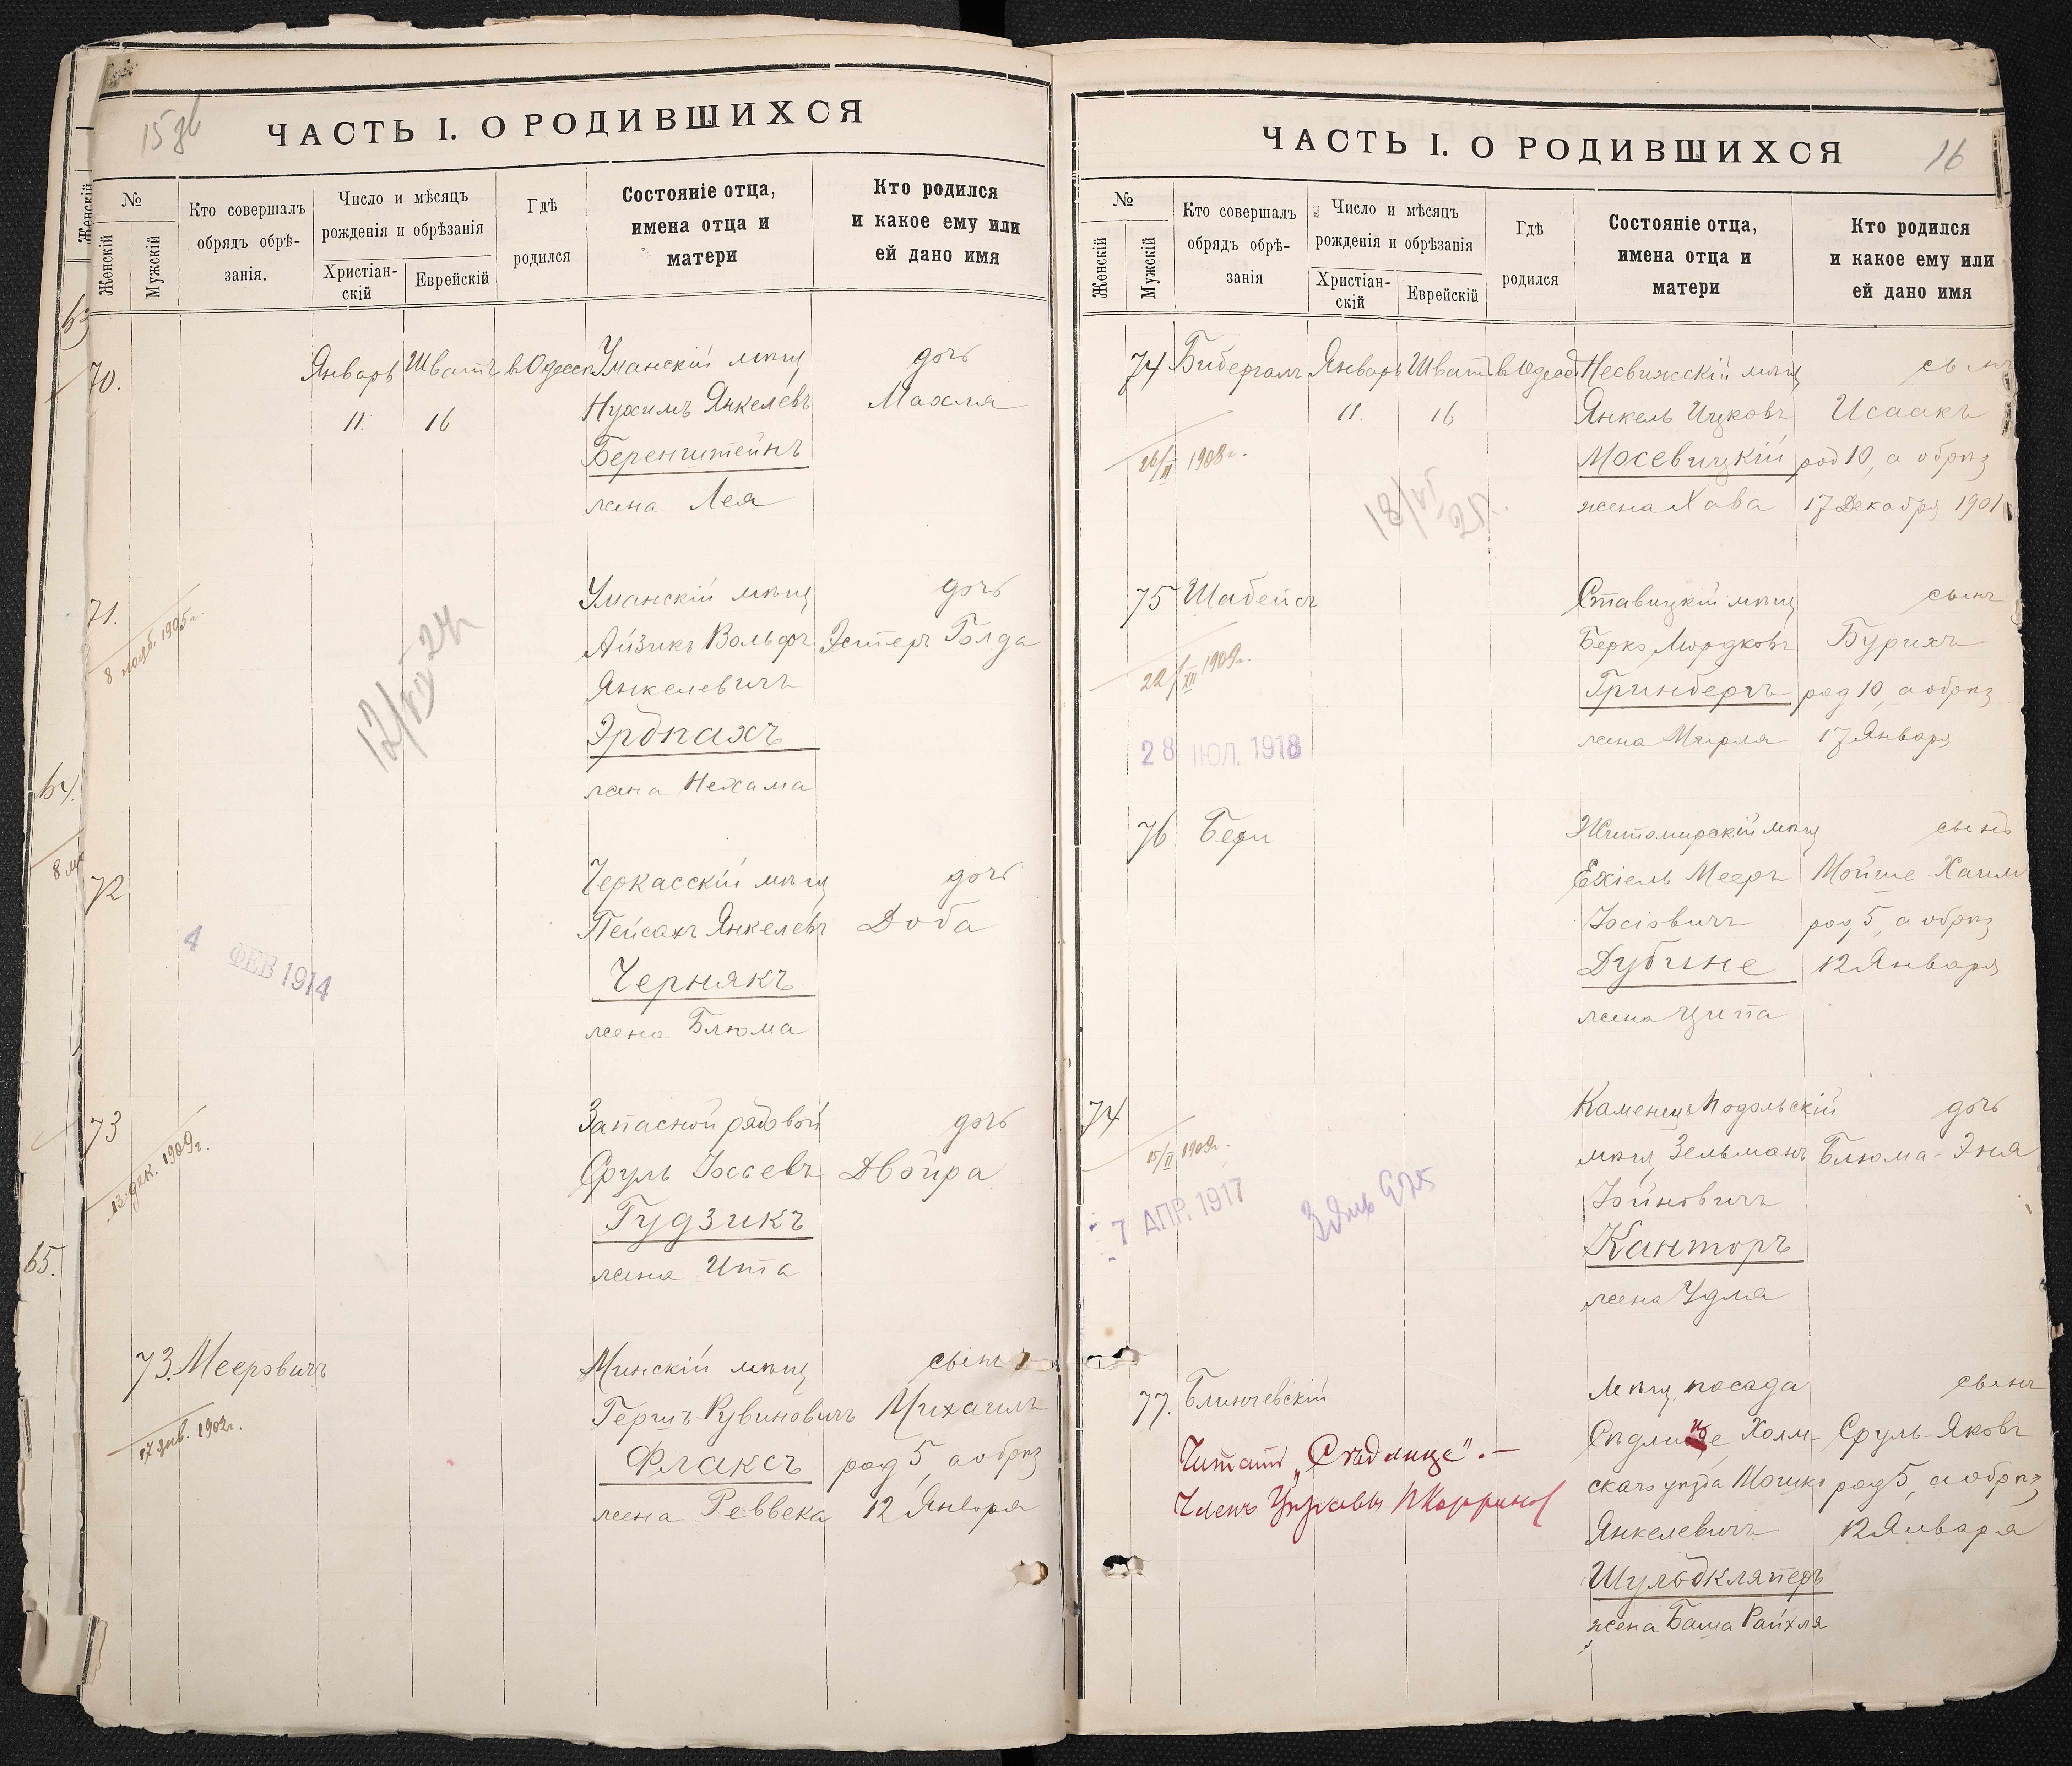 15 об
ЧАСТЬ I. О РОДИВШИХСЯ
№
Женскій
Мужскій
Кто совершалъ
обрядъ обрѣ-
занія.
Число и мѣсяцъ
рожденія и обрѣзанія
Христіан-
скій
Еврейскій
Гдѣ
родился
Состояніе отца,
имена отца и
матери
Кто родился
и какое ему или
ей дано имя
70. Январь Шватъ в Одессѣ Уманскій мѣщ дочь
11. 16 Нухимъ Янкелевъ Махля
Беренштейнъ
жена Лея
71. Уманскій мѣщ дочь
8 нояб. 1905 г.
Айзикъ Вольфъ Эстеръ Голда
Янкелевичъ
Эрбпахъ
жена Нехама
72 Черкасскій мѣщ дочь
Пейсахъ Янкелевъ Доба
4 ФЕВ 1914
Чернякъ
жена Блюма
73 Запасной рядовой дочь
13 дек. 1909 г.
Сруль Іосьевъ Двойра
Гудзикъ
жена Ита
73. Мееровичъ Минскій мѣщ сынъ
17 янв. 1902 г.
Гершъ-Рувиновичъ Михаилъ
Флаксъ род 5, а обрѣз
жена Реввека 12 Января
63
64.
65.
16
ЧАСТЬ I. О РОДИВШИХСЯ
№
Женскій
Мужскій
Кто совершалъ
обрядъ обрѣ-
занія
Число и мѣсяцъ
рожденія и обрѣзанія
Христіан-
скій
Еврейскій
Гдѣ
родился
Состояніе отца,
имена отца и
матери
Кто родился
и какое ему или
ей дано имя
74 Бибергалъ Январь Шватъ в Одессѣ Несвижскій мѣщ сынъ
11. 16 Янкель Ицковъ Исаакъ
26/II 1908 г.
Мосевицкій род 10, а обрѣз
жена Хава 17 Декабря 1901
75 Шабейсъ Ставицкій мѣщ сынъ
Берко Мордковъ Бурихъ
22/XII 1909 г.
Гринбергъ род 10, а обрѣз
жена Мирля 17 Января
28 ІЮЛ. 1918
76 Бери Житомирскій мѣщ сынъ
Ехіель Мееръ Мойше-Хаим
Іосіовичъ род 5, а обрѣз
Дубине 12 Января
жена Ципа
74 Каменецъ Подольскій дочь
15/II 1909 г.
мѣщ Зельманъ Блюма-Эня
Іойновичъ
7 АПР. 1917
Канторъ
жена Удля
77. Блинчевскій Мѣщ. посада сынъ
Сѣдлище Холм- Сруль-Яковъ
Читать „Сѣдлище“. —
скаго уѣзда Мошко род 5, а обрѣз
Членъ Управы
Янкелевичъ 12 Января
Шульдкляперъ
жена Баша Райхля